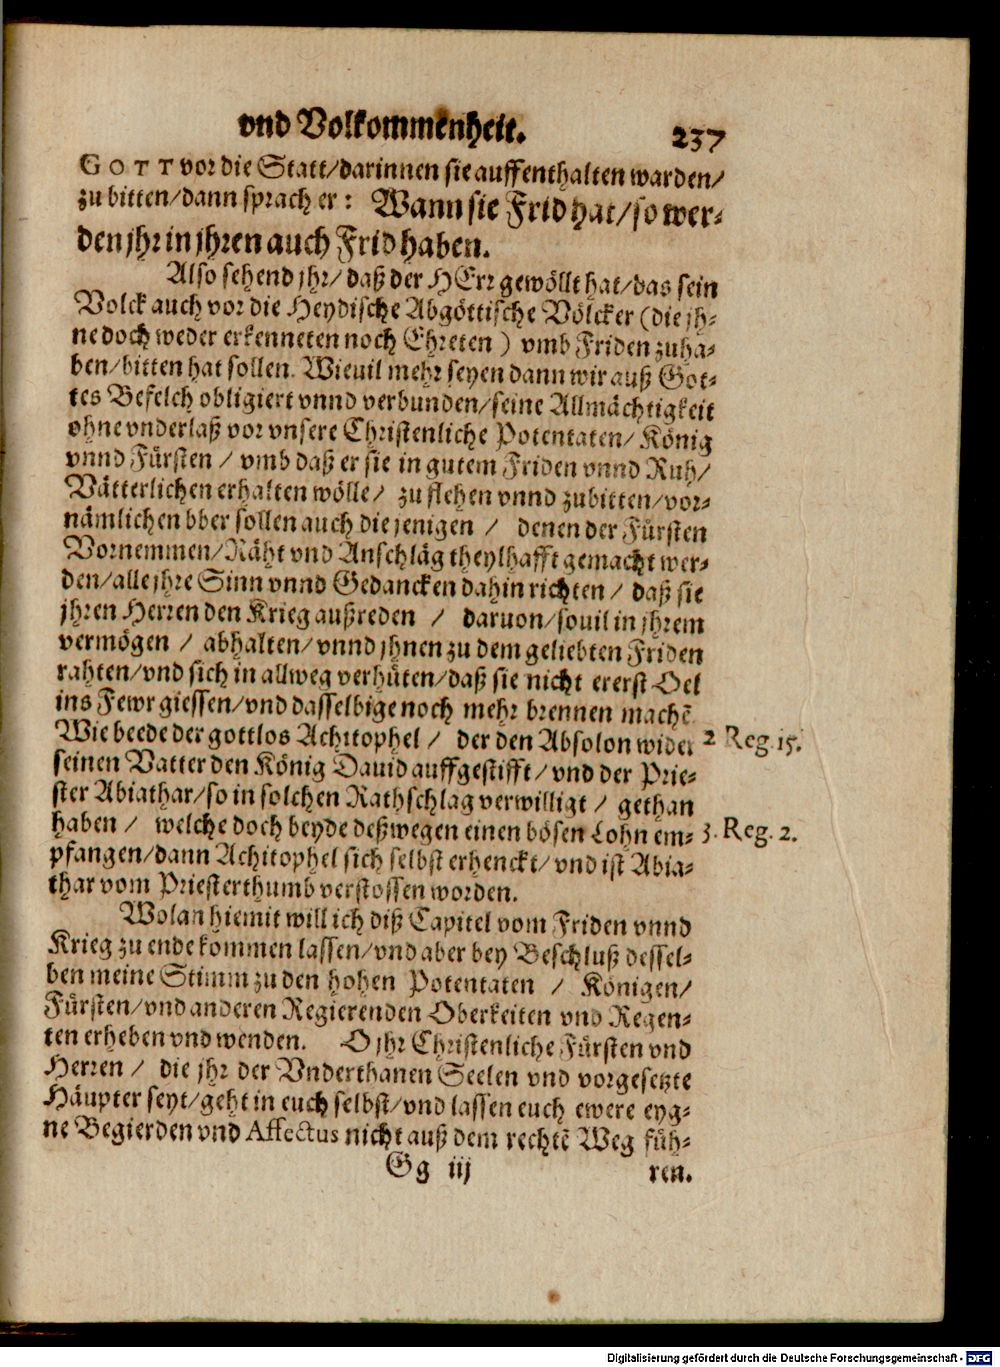 vnd Volkommenheit. 237
GOTT vor die Statt/darinnen sie auffenthalten warden/
zu bitten/dann sprach er: Wann sie Frid hat/so wer-
den jhr in jhren auch Frid haben.
Also sehend jhr/ daß der HErr gewöllt hat/das sein
Volck auch vor die Heydische Abgöttische Völcker (die jh-
ne doch weder erkenneten noch Ehreten) vmb Friden zuha-
ben/bitten hat sollen. Wieuil mehr seyen dann wir auß Got-
tes Befelch obligiert vnnd verbunden/seine Allmächtigkeit
ohne vnderlaß vor vnsere Christenliche Potentaten/ König
vnnd Fürsten / vmb daß er sie in gutem Friden vnnd Ruh/
Vätterlichen erhalten wölle/ zu flehen vnnd zubitten/vor-
nämlichen bber sollen auch die jenigen / denen der Fürsten
Vornemmen/Räht vnd Anschläg theylhafft gemacht wer-
den/alle jhre Sinn vnnd Gedancken dahin richten / daß sie
jhren Herren den Krieg außreden / daruon/souil in jhrem
vermögen / abhalten/vnnd jhnen zu dem geliebten Friden
rahten/vnd sich in allweg verhüten/daß sie nicht ererst Oel
ins Fewr giessen/vnd dasselbige noch mehr brennen machē
Wie beede der gottlos Achitophel / der den Absolon wider 2 Reg. 15.
seinen Vatter den König Dauid auffgestifft/vnd der Prie-
ster Abiathar/so in solchen Rathschlag verwilligt / gethan
haben / welche doch beyde deßwegen einen bösen Lohn em- 3. Reg. 2.
pfangen/dann Achitophel sich selbst erhenckt/vnd ist Abia-
thar vom Priesterthumb verstossen worden.
Wolan hiemit will ich diß Capitel vom Friden vnnd
Krieg zu ende kommen lassen/vnd aber bey Beschluß dessel-
ben meine Stimm zu den hohen Potentaten / Königen/
Fürsten/vnd anderen Regierenden Oberkeiten vnd Regen-
ten erheben vnd wenden. O jhr Christenliche Fürsten vnd
Herren / die jhr der Vnderthanen Seelen vnd vorgesetzte
Häupter seyt/geht in euch selbst/vnd lassen euch ewere eyg-
ne Begierden vnd Affectus nicht auß dem rechtē Weg füh-
Gg iij ren.
Digitalisierung gefördert durch die Deutsche Forschungsgemeinschaft - DFG